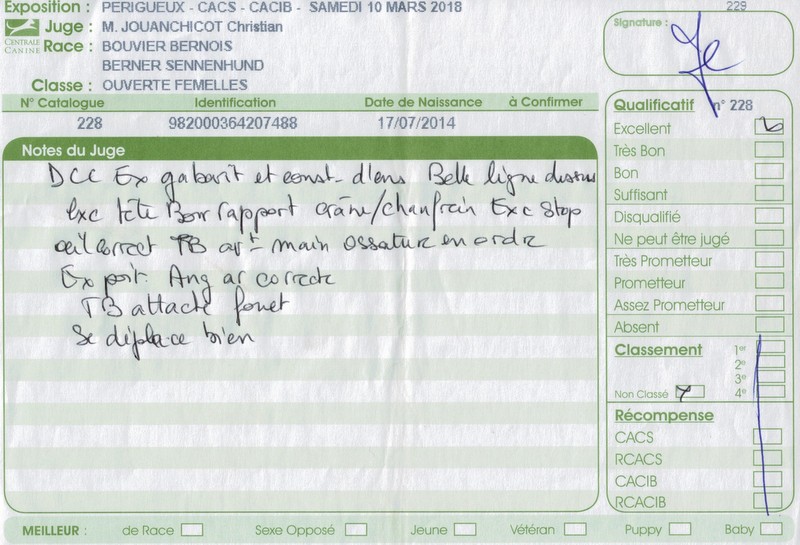 Exposition : PERIGUEUX - CACS - CACIB - SAMEDI 10 MARS 2018
229
Juge : M. JOUANCHICOT Christian
CENTRALE CANINE
Race : BOUVIER BERNOIS
BERNER SENNENHUND
Classe : OUVERTE FEMELLES
Signature :
N° Catalogue Identification Date de Naissance à Confirmer
228 982000364207488 17/07/2014
Notes du Juge
DCC Ex gabarit et const. d'ens Belle ligne dessus
Exc tête Bon rapport crâne/chanfrein Exc Stop
œil correct TB avt main Ossature en ordre
Ex poit. Ang ar correcte
TB attache fouet
Se déplace bien
Qualificatif n° 228
Excellent
Très Bon
Bon
Suffisant
Disqualifié
Ne peut être jugé
Très Prometteur
Prometteur
Assez Prometteur
Absent
Classement 1er
2e
3e
Non Classé 4e
Récompense
CACS
RCACS
CACIB
RCACIB
MEILLEUR : de Race Sexe Opposé Jeune Vétéran Puppy Baby